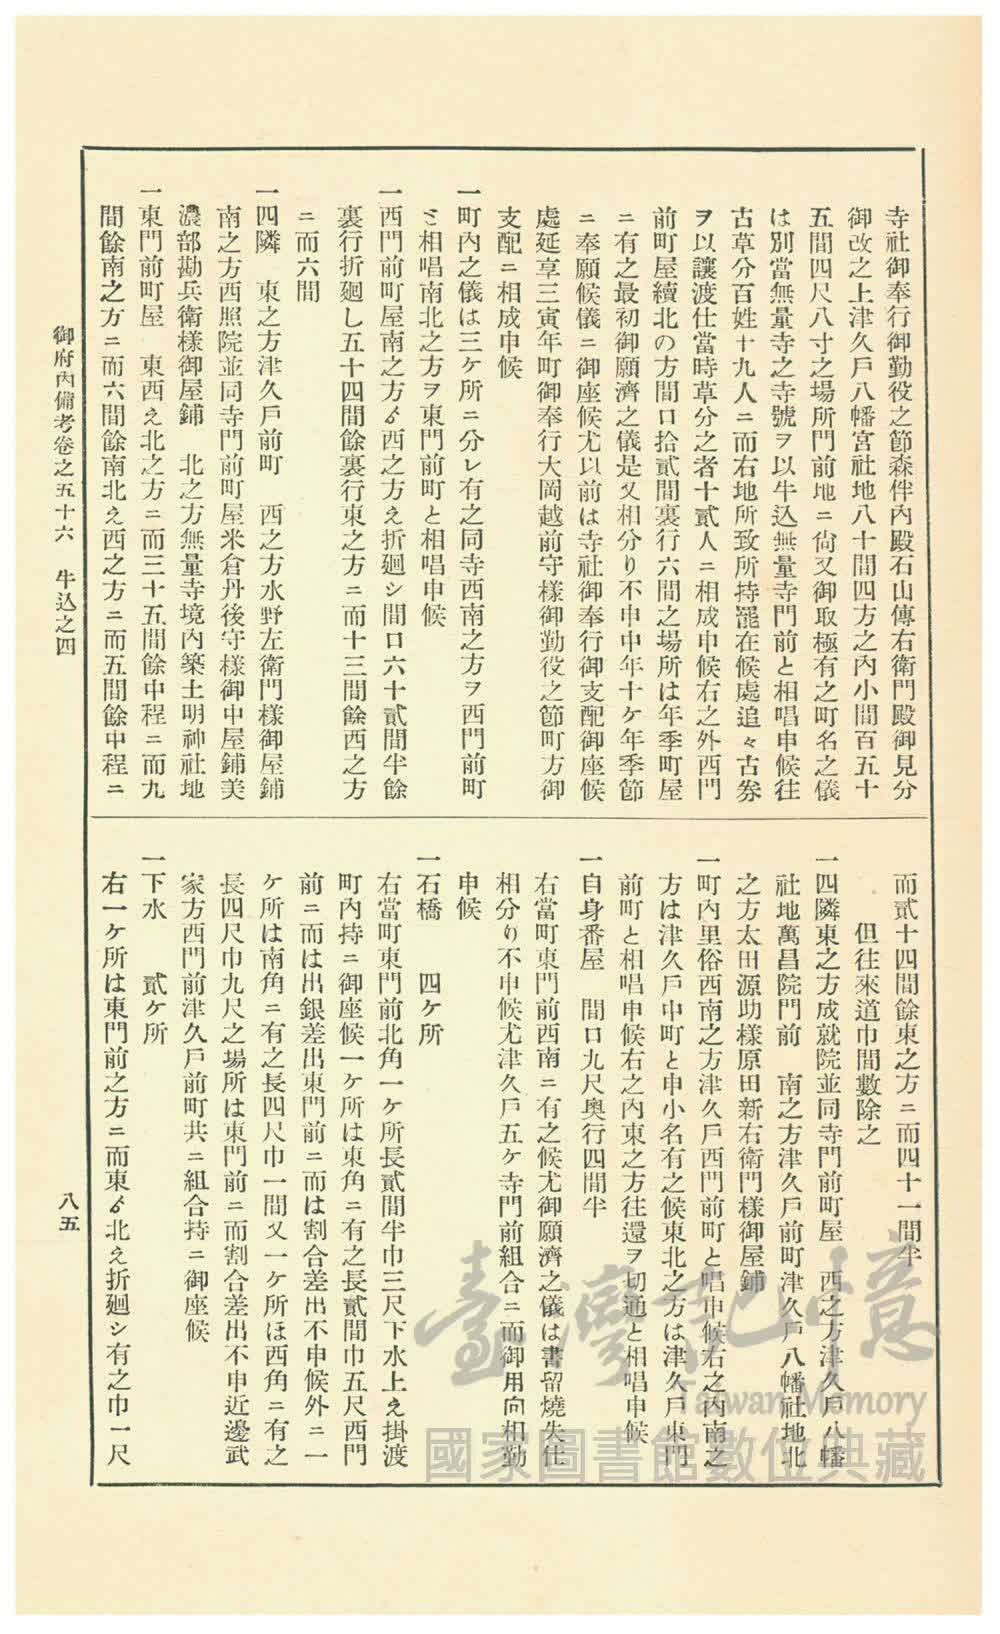 寺社御奉行御勤役之節森伴內殿石山傳右衞門殿御見分
御改之上津久戶八幡宮社地八十間四方之內小間百五十
五間四尺八寸之場所門前地ニ尙又御取極有之町名之儀
は別當無量寺之寺號ヲ以牛込無量寺門前と相唱申候往
古草分百姓十九人ニ而右地所致所持罷在候處追々古劵
ヲ以讓渡仕當時草分之者十貳人ニ相成申候右之外西門
前町屋續北の方間口拾貳間裏行六間之場所は年季町屋
ニ有之最初御願濟之儀是又相分り不申中年十ケ年季節
ニ奉願候儀ニ御座候尤以前は寺社御奉行御支配御座候
處延享三寅年町御奉行大岡越前守樣御勤役之節町方御
支配ニ相成申候
一町內之儀は三ケ所ニ分レ有之同寺西南之方ヲ西門前町
ミ相唱南北之方ヲ東門前町と相唱申候
一西門前町屋南之方ゟ西之方え折廻シ間口六十貳間半餘
裏行折廻し五十四間餘裏行東之方ニ而十三間餘西之方
ニ而六間
一四隣　東之方津久戶前町　西之方水野左衞門樣御屋鋪
南之方西照院並同寺門前町屋米倉丹後守樣御中屋鋪美
濃部勘兵衞樣御屋鋪　北之方無量寺境內築土明神社地
一東門前町屋　東西え北之方ニ而三十五間餘中程ニ而九
間餘南之方ニ而六間餘南北え西之方ニ而五間餘中程ニ
而貳十四間餘東之方ニ而四十一間半
但往來道巾間數除之
一四隣東之方成就院並同寺門前町屋　西之方津久戶八幡
社地萬昌院門前　南之方津久戶前町津久戶八幡社地北
之方太田源助樣原田新右衞門樣御屋鋪
一町內里俗西南之方津久戶西門前町と唱申候右之內南之
方は津久戶中町と申小名有之候東北之方は津久戶東門
前町と相唱申候右之內東之方往還ヲ切通と相唱申候
一自身番屋　間口九尺奧行四間半
右當町東門前西南ニ有之候尤御願濟之儀は書留燒失仕
相分り不申候尤津久戶五ケ寺門前組合ニ而御用向相勤
申候
一石橋　四ケ所
右當町東門前北角一ケ所長貳間半巾三尺下水上え掛渡
町內持ニ御座候一ケ所は東角ニ有之長貳間巾五尺西門
前ニ而は出銀差出東門前ニ而は割合差出不申候外ニ一
ケ所は南角ニ有之長四尺巾一間又一ケ所ほ西角ニ有之
長四尺巾九尺之場所は東門前ニ而割合差出不申近邊武
家方西門前津久戶前町共ニ組合持ニ御座候
一下水　貳ケ所
右一ケ所は東門前之方ニ而東ゟ北え折廻シ有之巾一尺
御府內備考卷之五十六　牛込之四
八五
臺灣記憶
Taiwan Memory
國家圖書館數位典藏